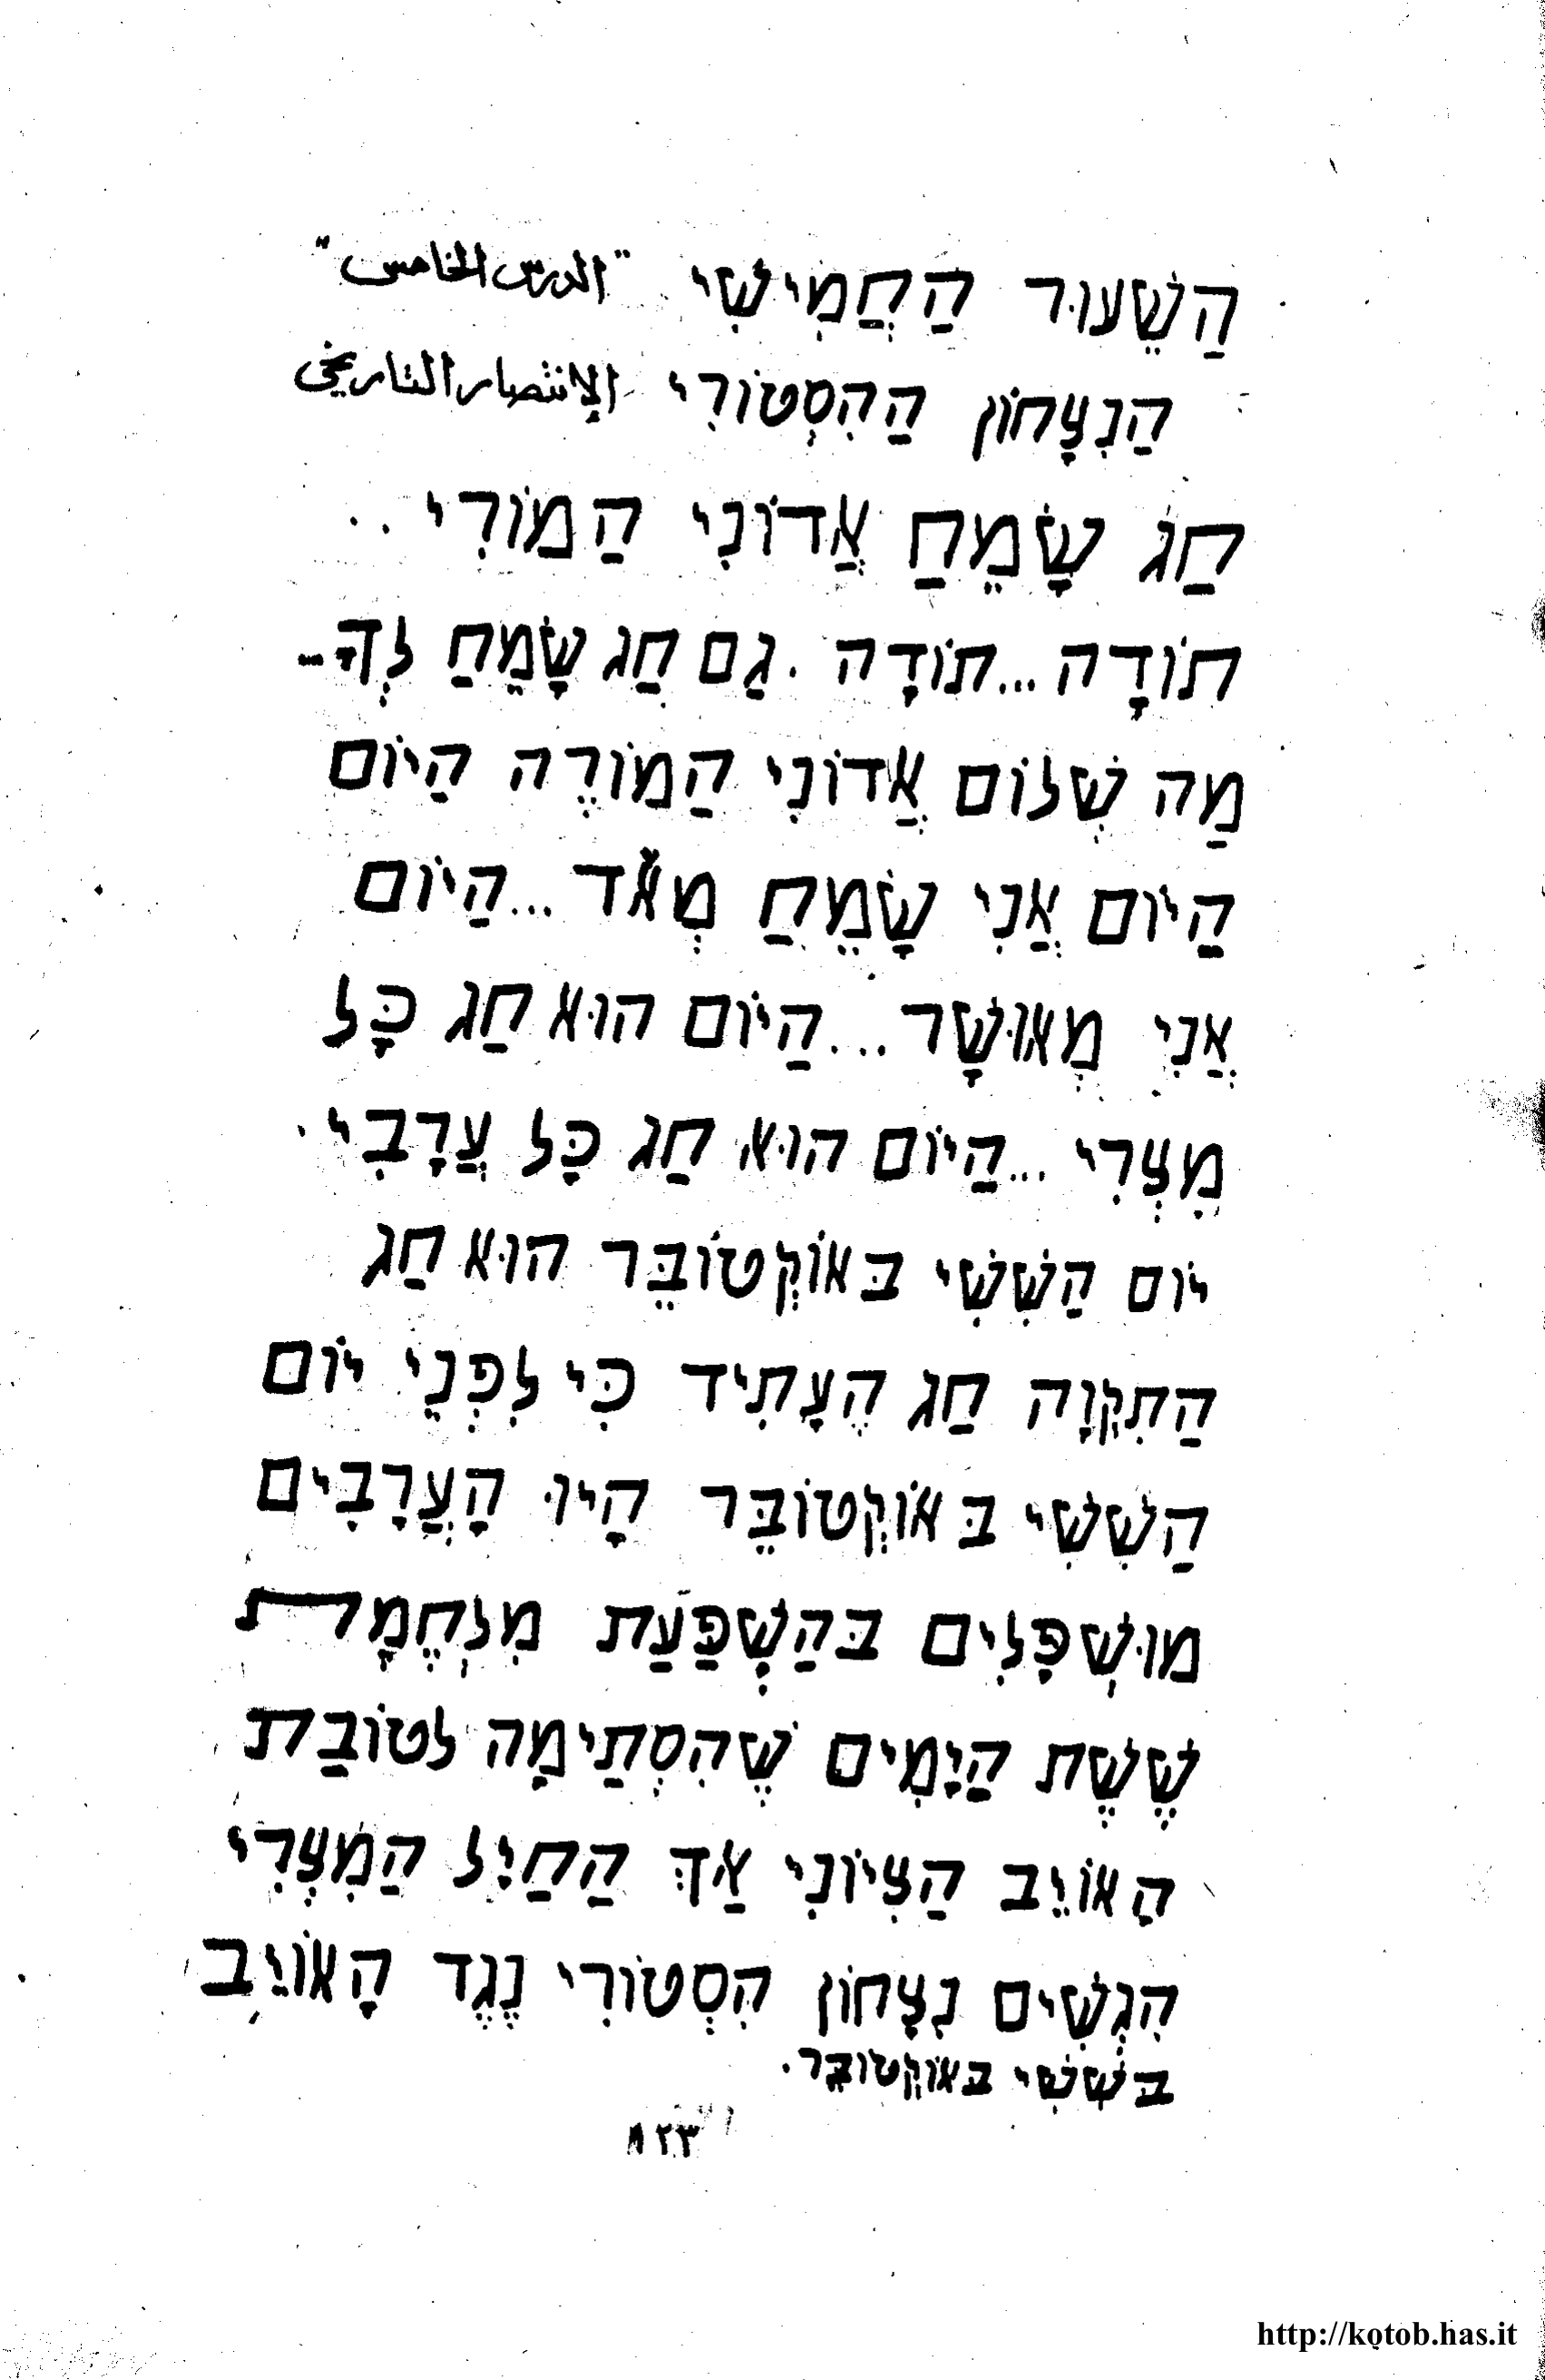 הַשֵׁעוּר הַחֲמִישִׁי "الدرس الخامس"
הַנִצָחוֹן הַהִסְטוֹרִי الإنتصار التاريخى
חַג שָׂמֵחַ אֲדוֹנִי הַמוֹרִי ..
תוֹדָה ...תוֹדָה . גַם חַג שָׂמֵחַ לְךָ...
מַה שְׁלוֹם אֲדוֹנִי הַמוֹרֶה הַיוֹם
הַיוֹם אֲנִי שָׂמֵחַ מְאֹד ...הַיוֹם
אֲנִי מְאוּשָׁר ...הַיוֹם הוּא חַג כָּל
מִצְרִי ...הַיוֹם הוּא חַג כָּל עֲרָבִי.
יוֹם הַשִׁשִׁי בּאוֹקְטוֹבֵּר הוּא חַג
הַתִקְוָה חַג הֶעָתִיד כִּי לִפְנֵי יוֹם
הַשִׁשִׁי בּאוֹקְטוֹבֵּר הָיוּ הָעֲרָבִים
מוּשְׁפָּלִים בּהַשְׁפַּעַת מִלְחֶמָת
שֶׁשֶׁת הַיָמִים שֶׁהִסְתַיִמָה לטוֹבַת
הָאוֹיֵב הַצִיוֹנִי אַךְ הַחַיִל הַמִצְרִי
הִגְשִׁים נִצָחוֹן הִסְטוֹרִי נֶגֶד הָאוֹיֵב
בּשִׁשִׁי בּאוֹקְטוֹבֵּר.
٨٢٣
http://kotob.has.it